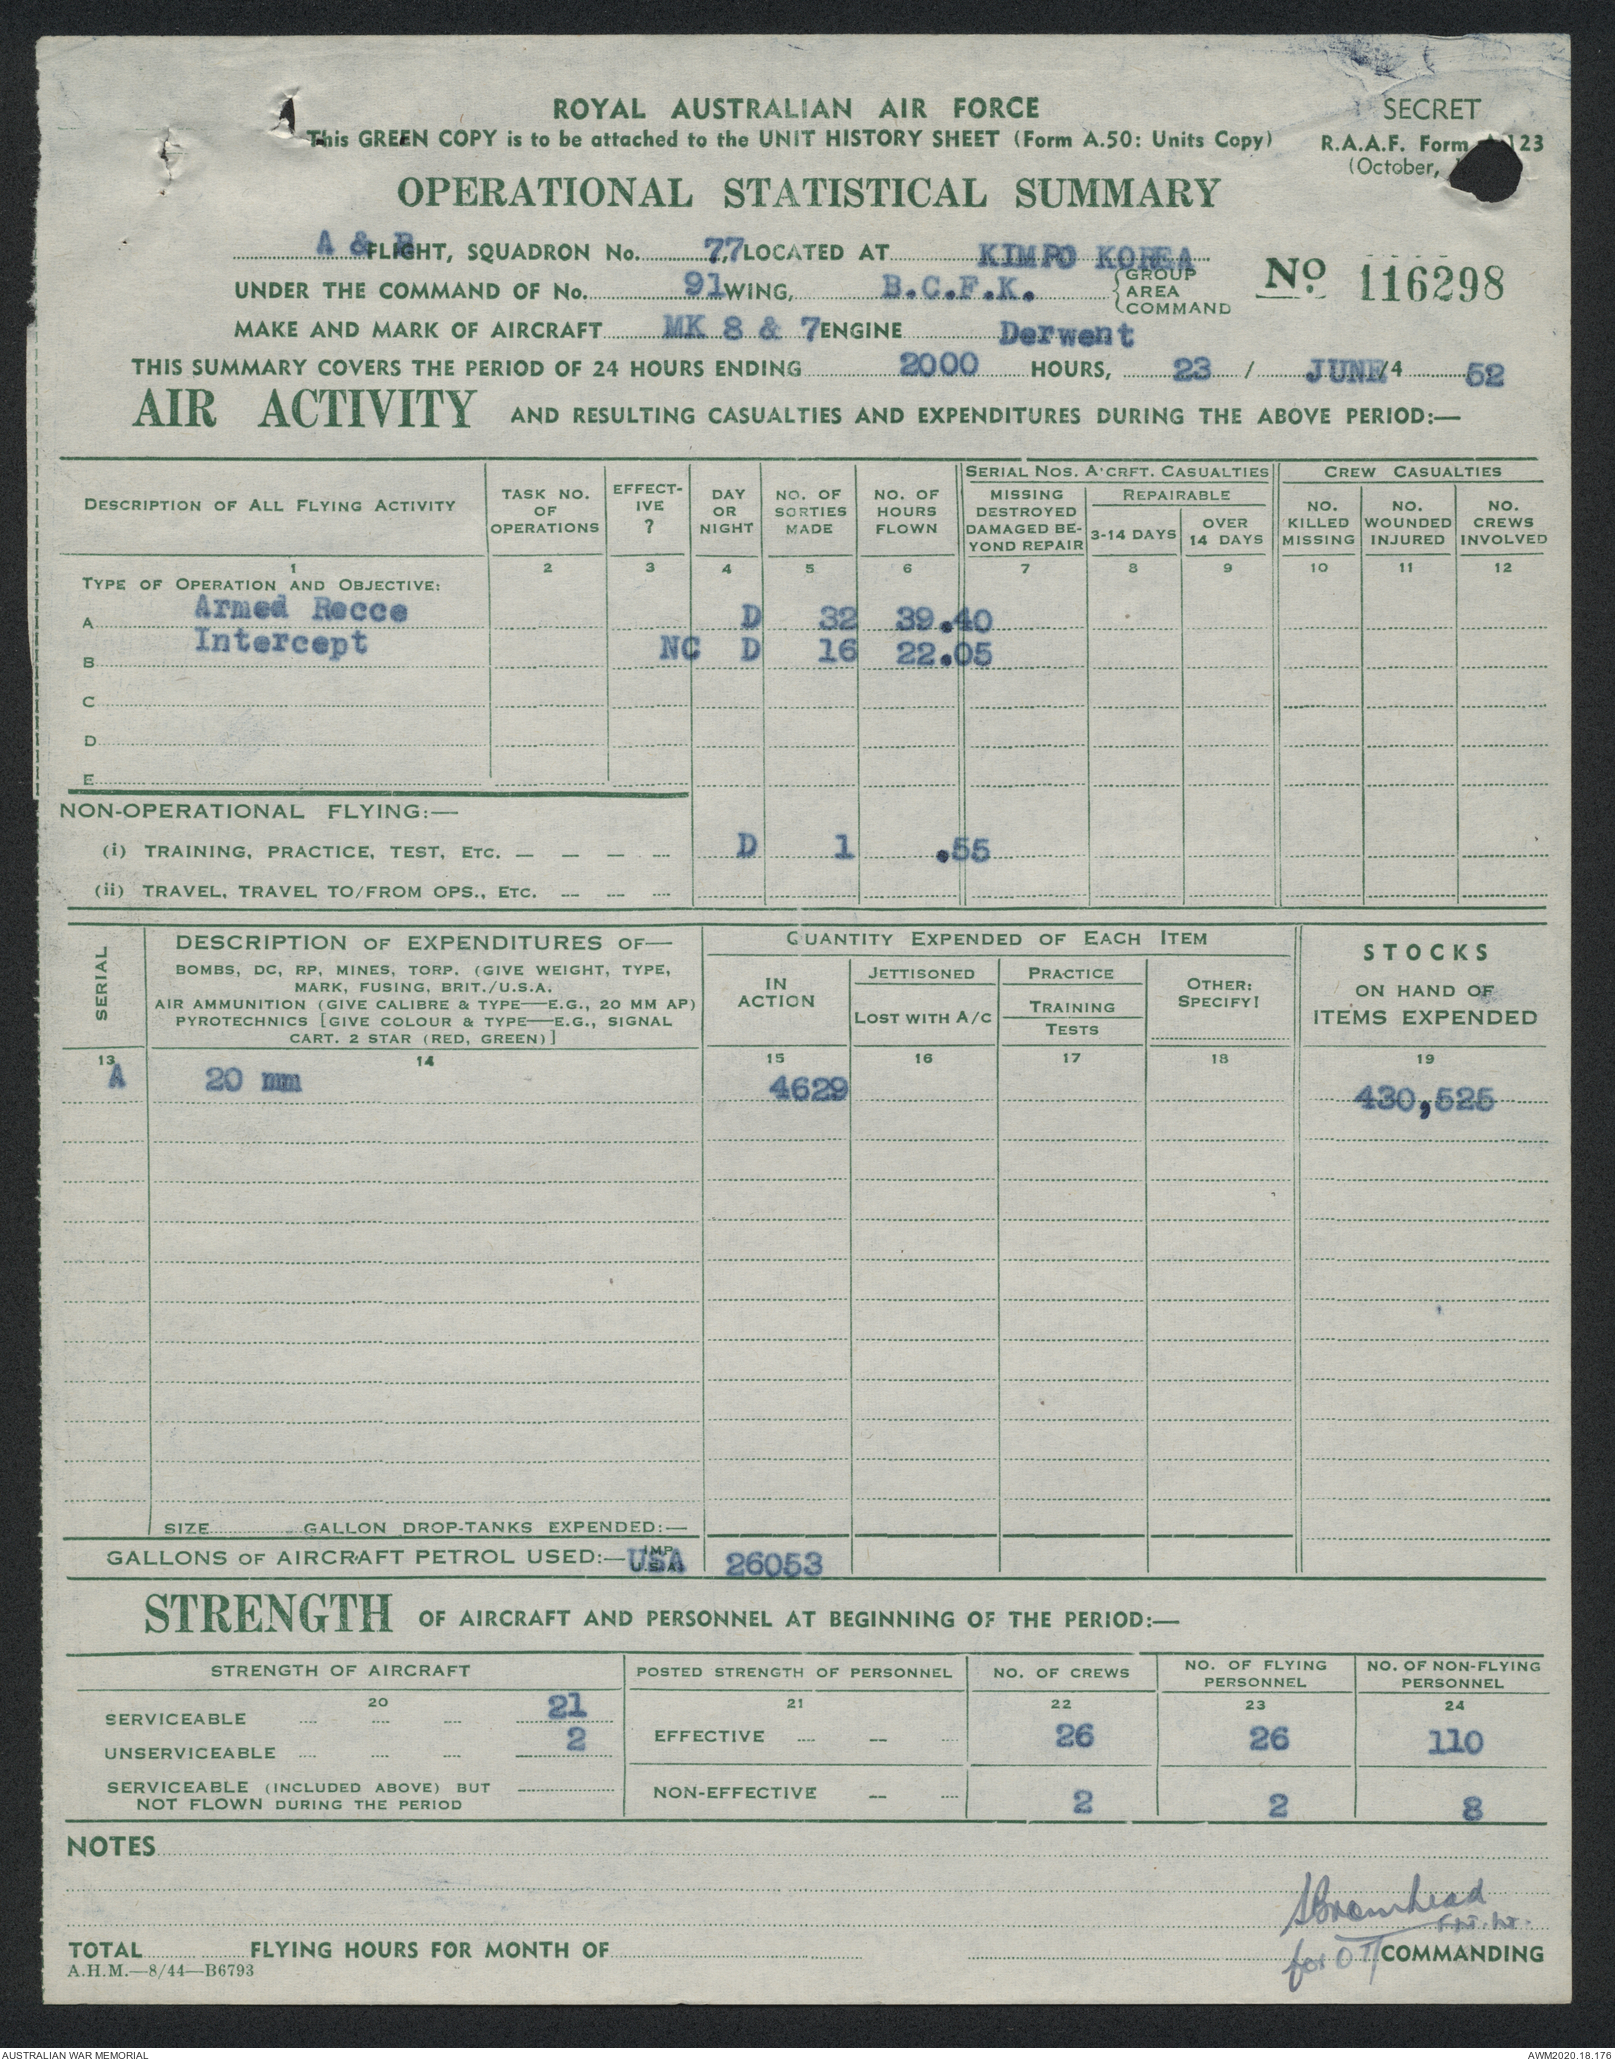 ROYAL AUSTRALIAN AIR FORCE
SECRET
This GREEN COPY is to be attached to the UNIT HISTORY SHEET (Form A.50: Units Copy)
R.A.A.F. Form 123
(October,
OPERATIONAL STATISTICAL SUMMARY
A & B FLIGHT, SQUADRON No. 77, LOCATED AT KIMPO KOREA
UNDER THE COMMAND OF No. 91 WING, B.C.F.K. GROUP AREA COMMAND
No. 116298
MAKE AND MARK OF AIRCRAFT MK 8 & 7 ENGINE Derwent
THIS SUMMARY COVERS THE PERIOD OF 24 HOURS ENDING 2000 HOURS, 23 / JUNE /4 52
AIR ACTIVITY AND RESULTING CASUALTIES AND EXPENDITURES DURING THE ABOVE PERIOD:—
DESCRIPTION OF ALL FLYING ACTIVITY
TASK NO. OF OPERATIONS
EFFECT- IVE ?
DAY OR NIGHT
NO. OF SORTIES MADE
NO. OF HOURS FLOWN
SERIAL NOS. A'CRFT. CASUALTIES
MISSING DESTROYED DAMAGED BE- YOND REPAIR
REPAIRABLE
3-14 DAYS
OVER 14 DAYS
CREW CASUALTIES
NO. KILLED MISSING
NO. WOUNDED INJURED
NO. CREWS INVOLVED
1 2 3 4 5 6 7 8 9 10 11 12
TYPE OF OPERATION AND OBJECTIVE:
A Armed Recce D 32 39.40
B Intercept NC D 16 22.05
C
D
E
NON-OPERATIONAL FLYING:—
(i) TRAINING, PRACTICE, TEST, ETC. — — — — D 1 .55
(ii) TRAVEL, TRAVEL TO/FROM OPS., ETC. — — —
SERIAL
DESCRIPTION OF EXPENDITURES OF—
BOMBS, DC, RP, MINES, TORP. (GIVE WEIGHT, TYPE,
MARK, FUSING, BRIT./U.S.A.
AIR AMMUNITION (GIVE CALIBRE & TYPE—E.G., 20 MM AP)
PYROTECHNICS [GIVE COLOUR & TYPE—E.G., SIGNAL
CART. 2 STAR (RED, GREEN)]
QUANTITY EXPENDED OF EACH ITEM
IN ACTION
JETTISONED
LOST WITH A/C
PRACTICE
TRAINING
TESTS
OTHER: SPECIFY!
STOCKS
ON HAND OF
ITEMS EXPENDED
13 14 15 16 17 18 19
A 20 mm 4629 430,525
SIZE GALLON DROP-TANKS EXPENDED:—
GALLONS OF AIRCRAFT PETROL USED:— IMP. U.S.A. USA 26053
STRENGTH OF AIRCRAFT AND PERSONNEL AT BEGINNING OF THE PERIOD:—
STRENGTH OF AIRCRAFT
POSTED STRENGTH OF PERSONNEL
NO. OF CREWS
NO. OF FLYING PERSONNEL
NO. OF NON-FLYING PERSONNEL
20 21 22 23 24
SERVICEABLE 21
UNSERVICEABLE 2
SERVICEABLE (INCLUDED ABOVE) BUT
NOT FLOWN DURING THE PERIOD
EFFECTIVE 26 26 110
NON-EFFECTIVE 2 2 8
NOTES
SBromhead
Flt. Lt.
TOTAL FLYING HOURS FOR MONTH OF
for O/ COMMANDING
A.H.M.—8/44—B6793
AUSTRALIAN WAR MEMORIAL
AWM2020.18.176